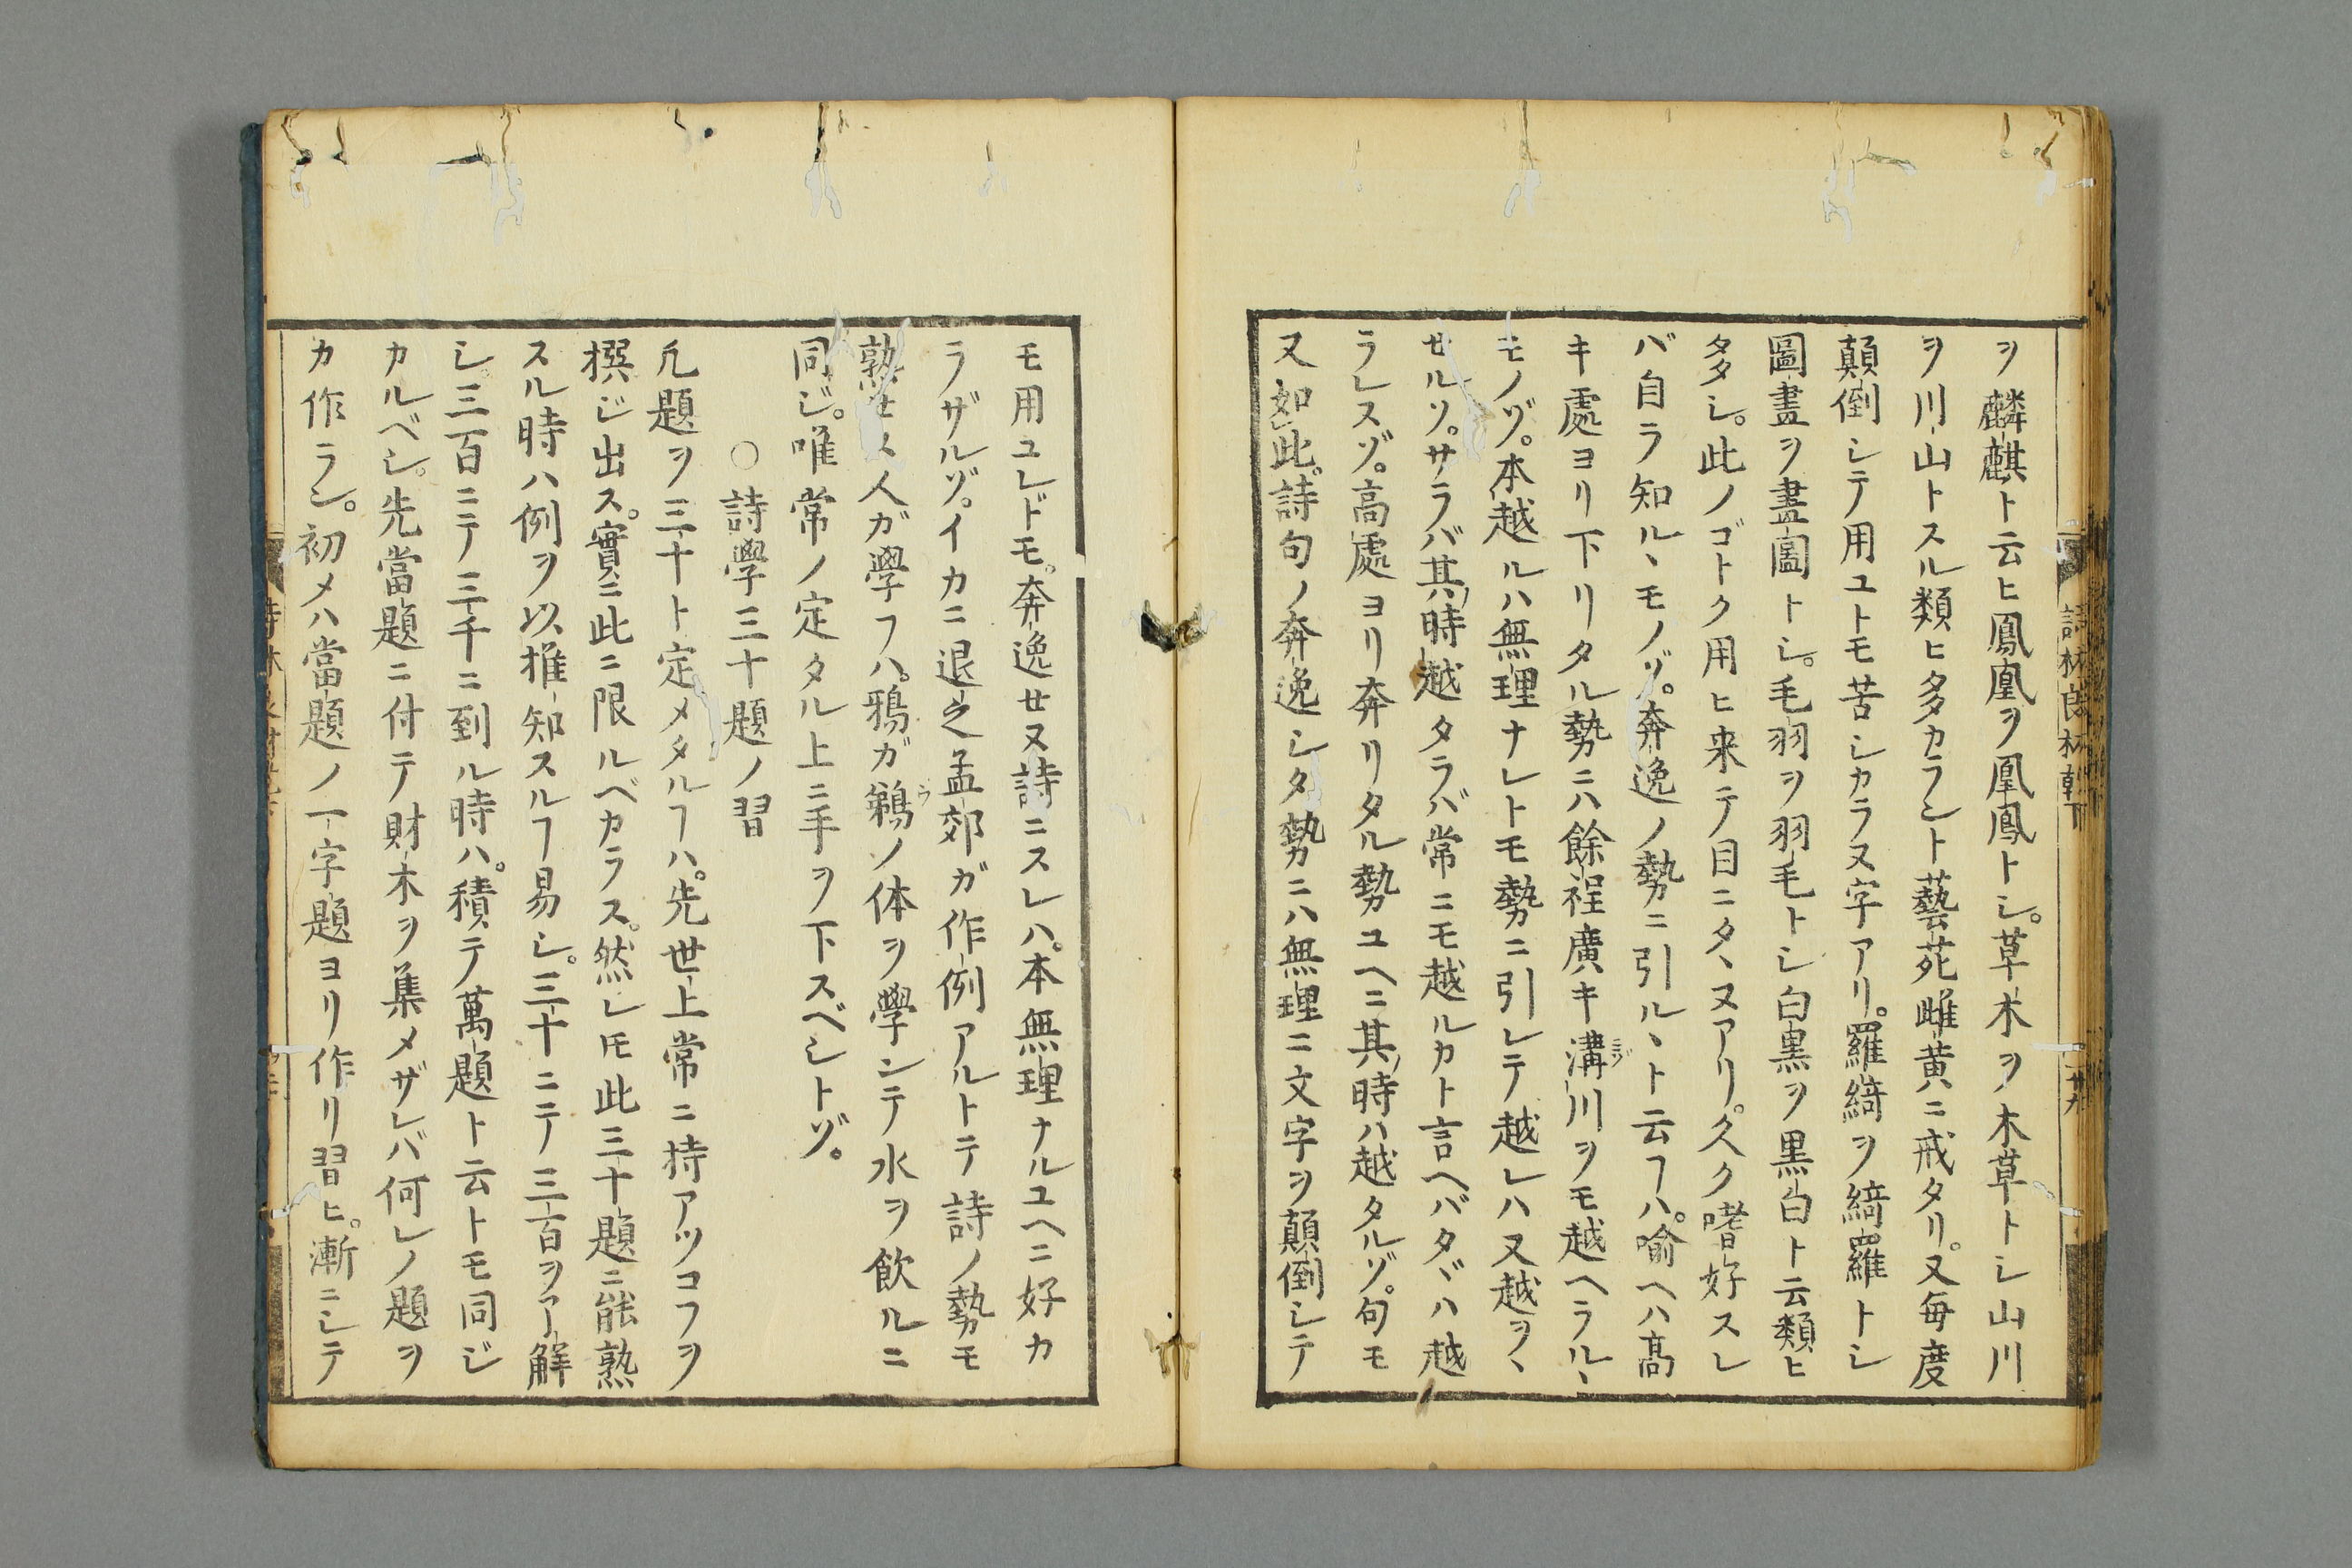 ヲ麟麒ト云ヒ鳳凰ヲ凰鳳トシ。草木ヲ木草トシ山川
ヲ川山トスル類ヒ多カラント藝苑雌黄ニ戒タリ。又毎度
顛倒シテ用ユトモ苦シカラヌ字アリ。羅綺ヲ綺羅トシ
圖畫ヲ畫圖トシ。毛羽ヲ羽毛トシ白黒ヲ黒白ト云類ヒ
多シ。此ノゴトク用ヒ来テ目ニタヽヌアリ。久ク嗜好スレ
バ自ラ知ルヽモノゾ。奔逸ノ勢ニ引ルヽト云フハ。喩ヘハ高
キ處ヨリ下リタル勢ニハ餘程廣キ溝川ヲモ越ヘラルヽ
モノゾ。本越ルハ無理ナレトモ勢ニ引レテ越レハ又越ヲヽ
セルソ。サラバ其時越タラバ常ニモ越ルカト言ヘバタヾハ越
ラレスゾ。高處ヨリ奔リタル勢ユヘニ其時ハ越タルゾ。句モ
又如此。詩句ノ奔逸シタ勢ニハ無理ニ文字ヲ顛倒シテ
モ用ユレドモ。奔逸セヌ詩ニスレハ。本無理ナルユヘニ好カ
ラザルゾ。イカニ退之孟郊ガ作例アルトテ詩ノ勢モ
熟セヌ人ガ學フハ。鴉ガ鵜ノ体ヲ學ンテ水ヲ飲ルニ
同ジ。唯常ノ定タル上ニ手ヲ下スベシトゾ。
○詩學三十題ノ習
凡題ヲ三十ト定メタルフハ。先世上常ニ持アツコフヲ
撰ジ出ス。實ニ此ニ限ルベカラス。然レ𪜈此三十題ニ能熟
スル時ハ例ヲ以推知スルフ易シ。三十ニテ三百ヲア解
シ三百ニテ三千ニ到ル時ハ。積テ萬題ト云トモ同ジ
カルベシ。先當題ニ付テ財木ヲ集メザレバ何レノ題ヲ
カ作ラン。初メハ當題ノ一字題ヨリ作リ習ヒ。漸ニシテ